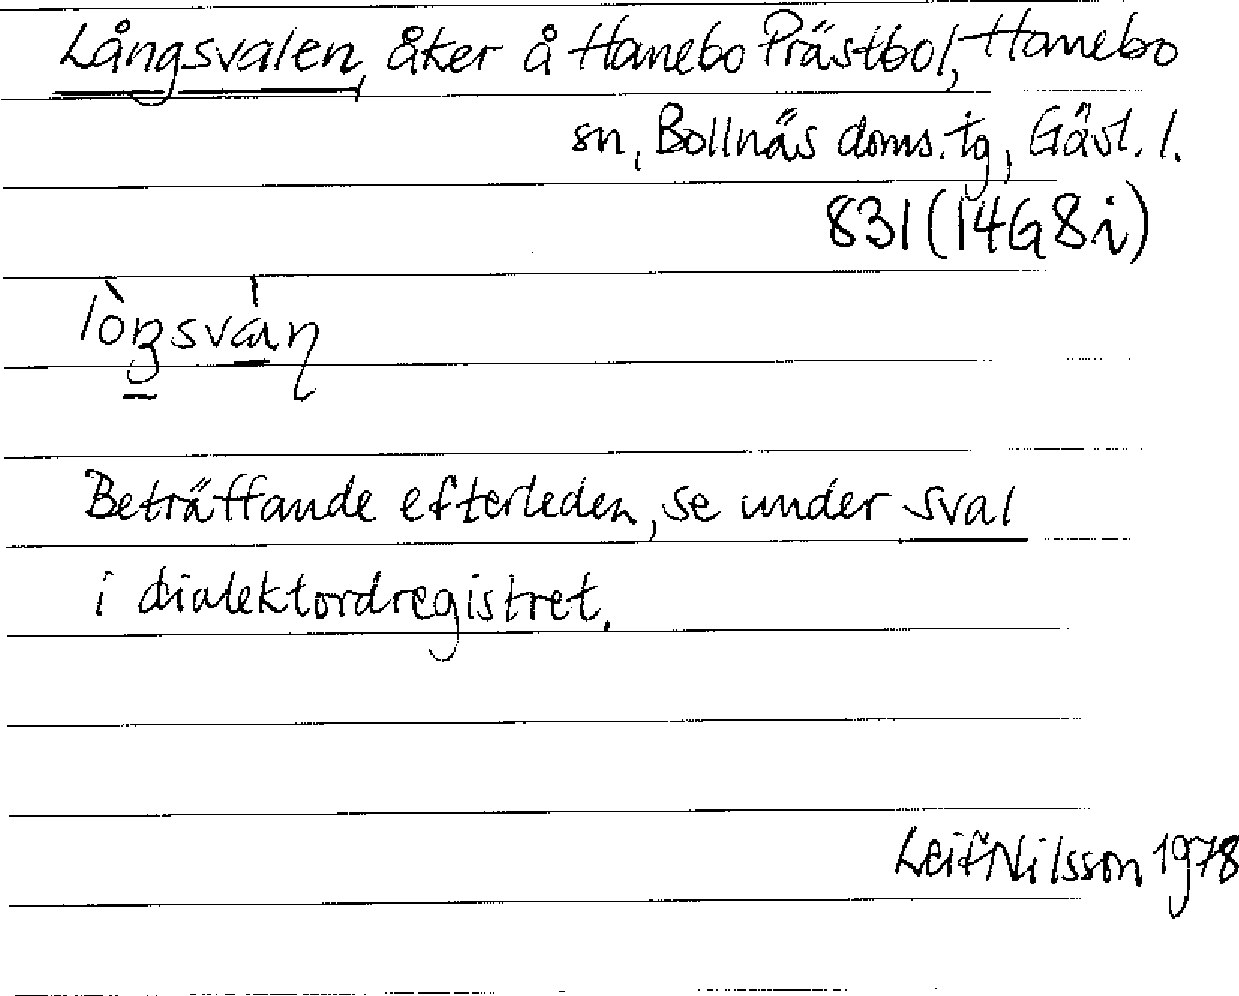 Långsvalen, åker å Hanebo Prästbol, Hanebo
sn, Bollnäs doms. tg, Gävl. l.
831 (14G8i)
Beträffande efterleden, se under sval
i dialektordregistret.
Leif Nilsson 1978